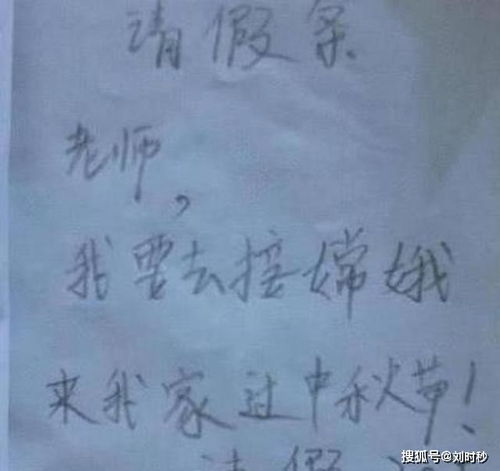 请假条
老师，
我要去接嫦娥
来我家过中秋节！
请假
搜狐号@刘时秒